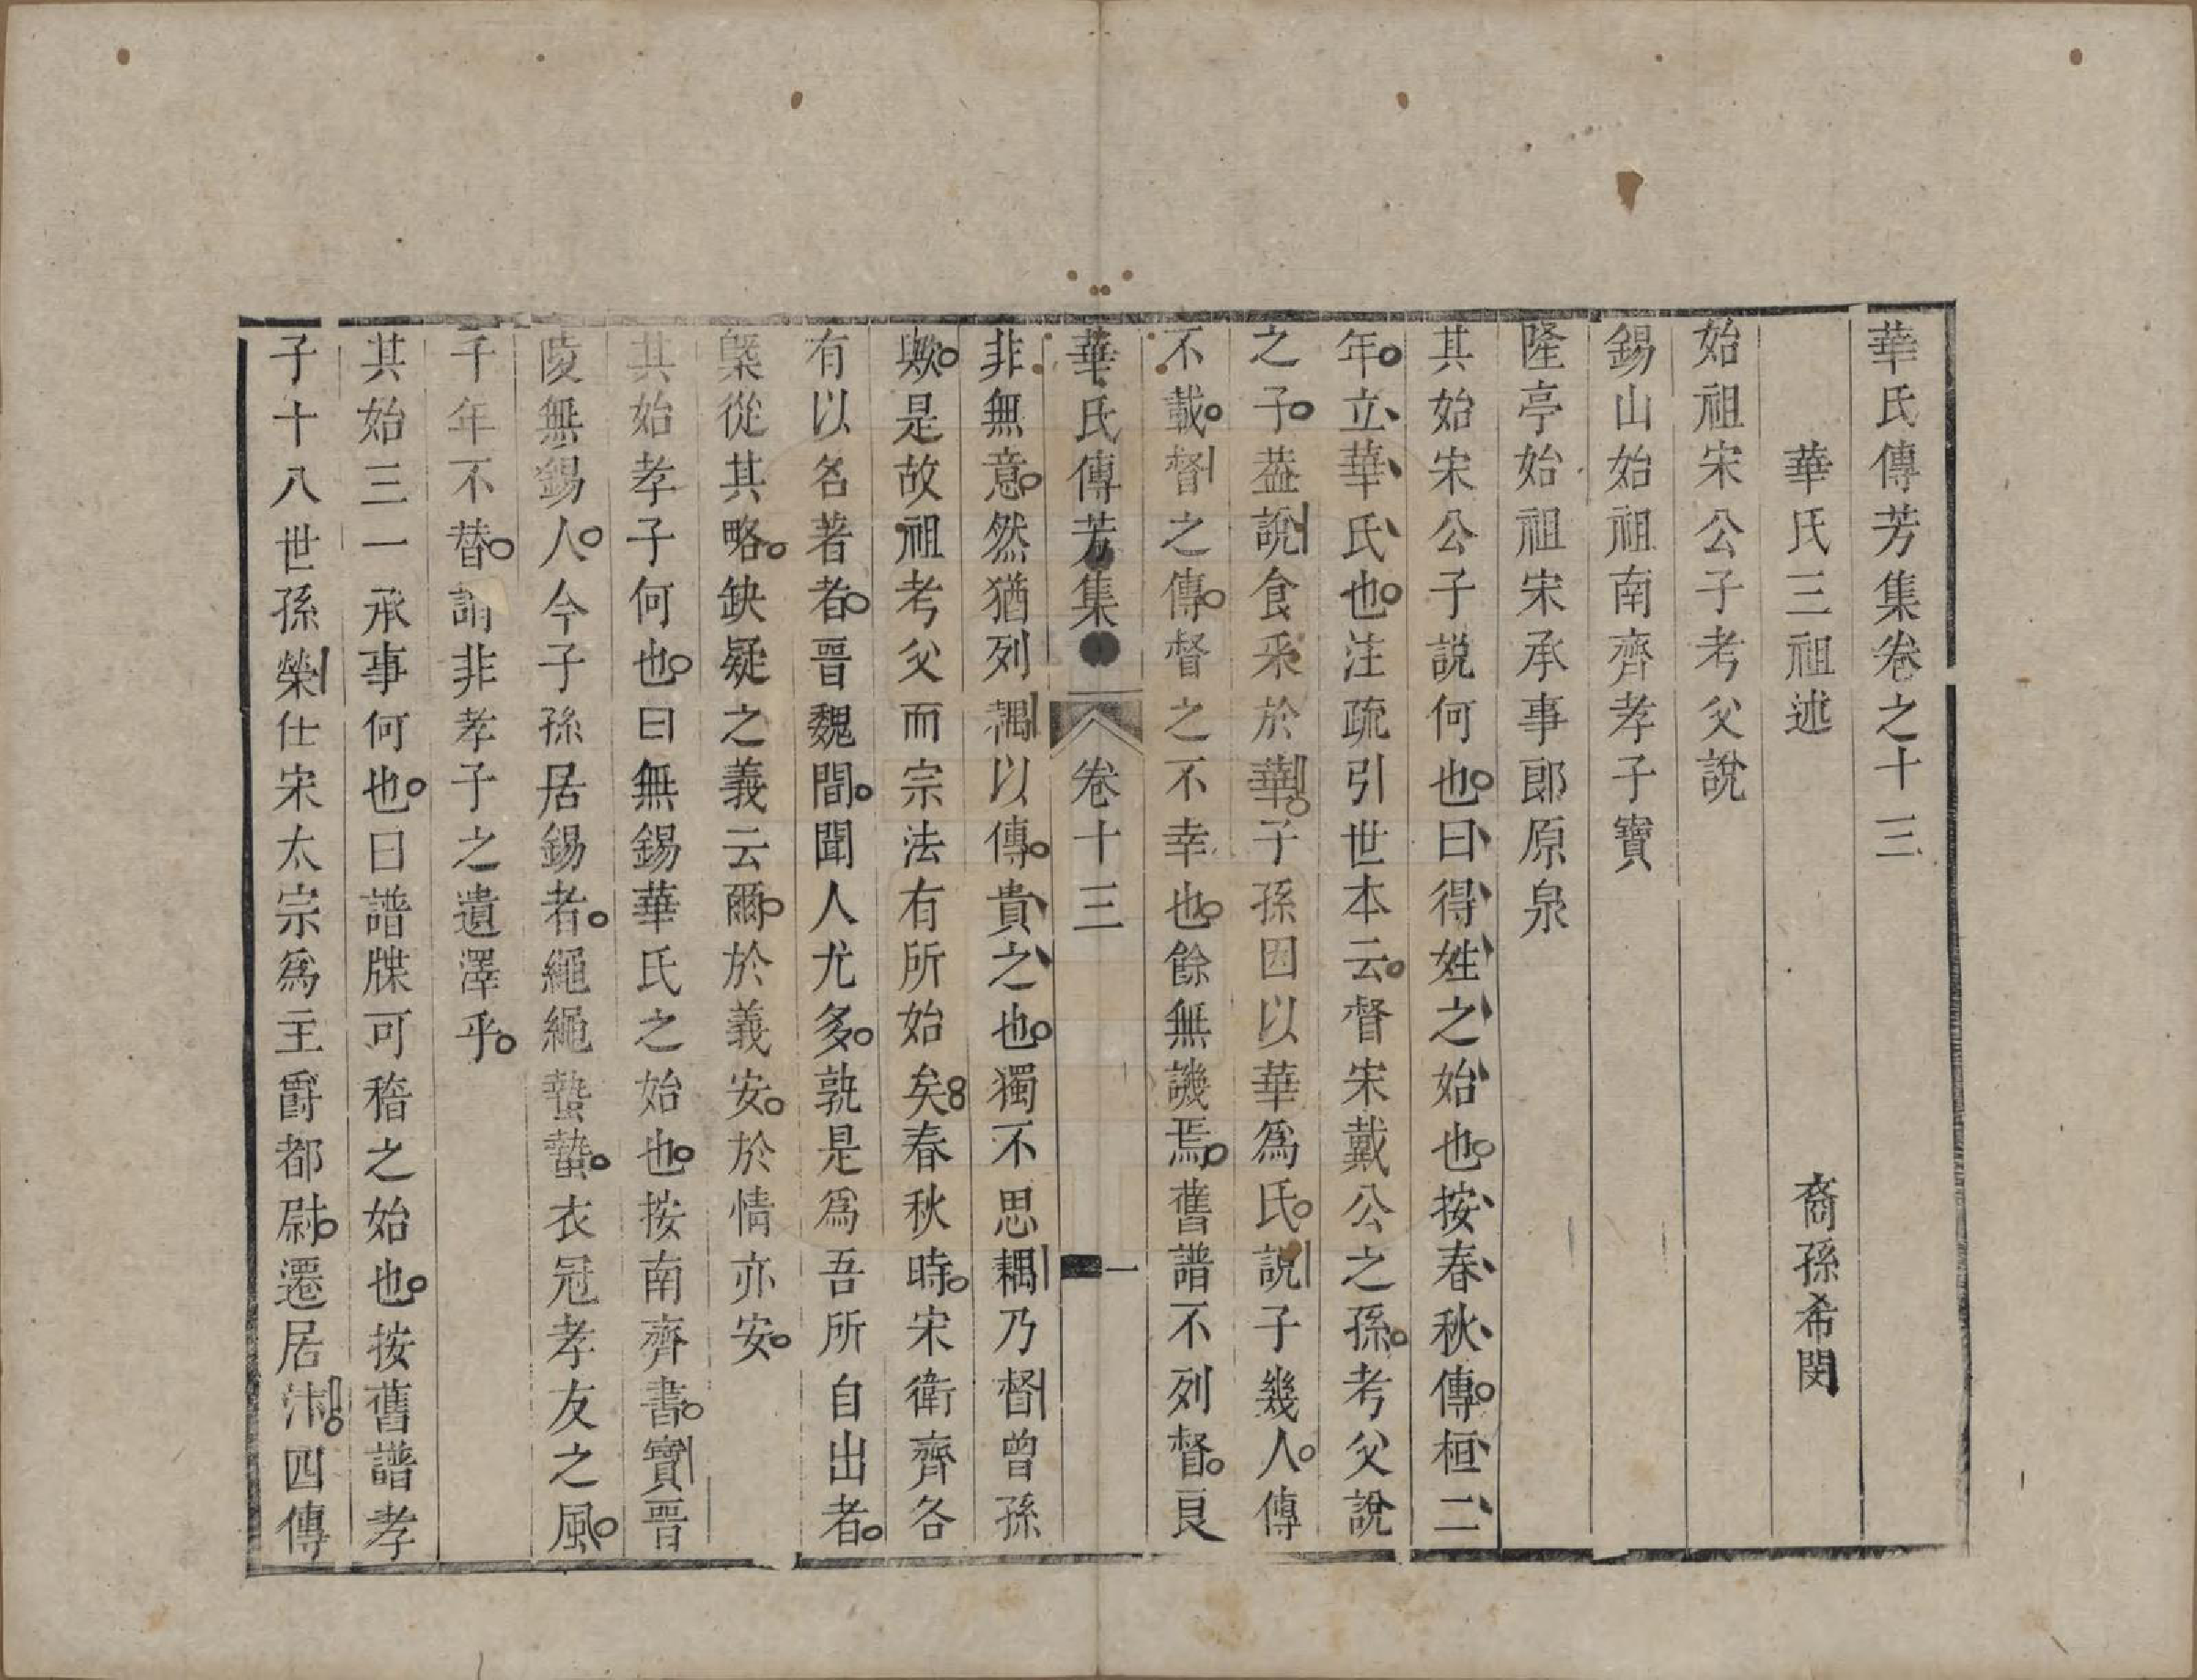 華氏傳芳集卷之十三
華氏三祖述　　裔孫希閔
始祖宋公子考父說
錫山始祖南齊孝子寶
隆亭始祖宋承事郎原泉
其始宋公子說何也曰得姓之始也按春秋傳桓二
年立華氏也注疏引世本云督宋戴公之孫考父說
之子葢說食采於華子孫因以華爲氏說子幾人傳
不載督之傳督之不幸也餘無譏焉舊譜不列督良
華氏傳芳集　卷十三　一
非無意然猶列耦以傳貴之也獨不思耦乃督曾孫
歟是故祖考父而宗法有所始矣春秋時宋衛齊各
有以名著者晉魏間聞人尤多孰是爲吾所自出者
槩從其略缺疑之義云爾於義安於情亦安
其始孝子何也曰無錫華氏之始也按南齊書寶晉
陵無錫人今子孫居錫者繩繩蟄蟄衣冠孝友之風
千年不替謂非孝子之遺澤乎
其始三一承事何也曰譜牒可稽之始也按舊譜孝
子十八世孫榮仕宋太宗爲主爵都尉遷居汴四傳